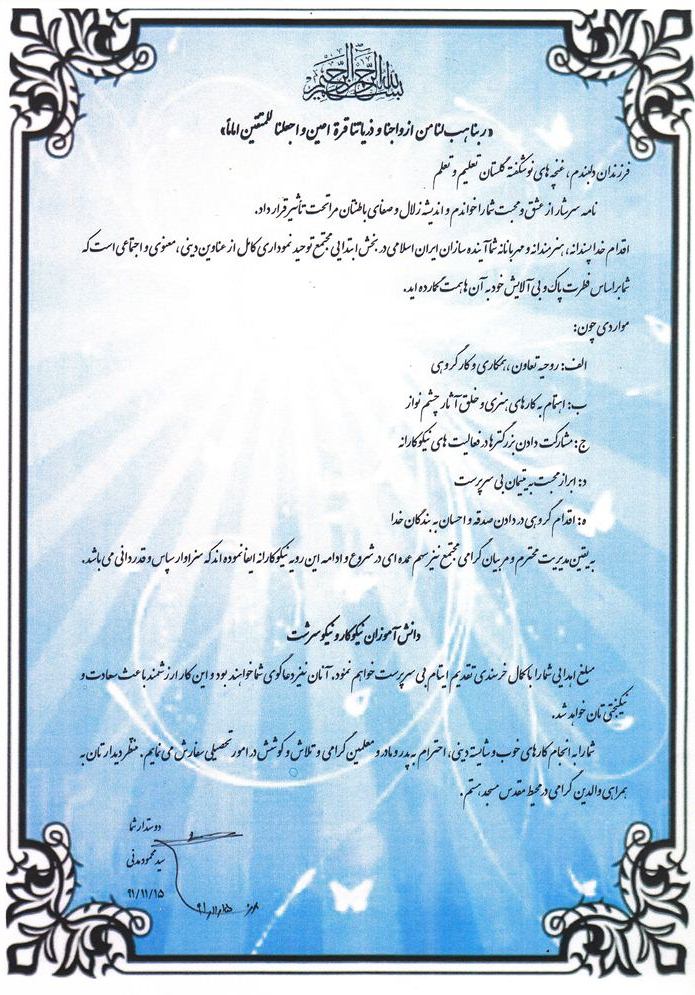 بسم الله الرحمن الرحیم
« ربنا هب لنا من ازواجنا و ذریاتنا قرة اعین و اجعلنا للمتقین اماماً»
فرزندان دلبندم، غنچه های نوشکفته گلستان تعلیم و تعلم
نامه سرشار از عشق و محبت شما را خواندم و اندیشه زلال و صفای باطنتان مرا تحت تأثیر قرار داد.
اقدام خداپسندانه، هنرمندانه و مهربانانه شما آینده سازان ایران اسلامی در بخش ابتدایی مجتمع توحید نموداری کامل از عناوین دینی، معنوی و اجتماعی است که
شما بر اساس فطرت پاک و بی آلایش خود به آن همت گمارده اید.
مواردی چون:
الف: روحیه تعاون، همکاری و کار گروهی
ب: اهتمام به کارهای هنری و خلق آثار چشم نواز
ج: مشارکت دادن بزرگترها در فعالیت های نیکوکارانه
د: ابراز محبت به یتیمان بی سرپرست
ه: اقدام گروهی در دادن صدقه و احسان به بندگان خدا
به یقین مدیریت محترم و مربیان گرامی مجتمع نیز سهم عمده ای در شروع و ادامه این رویه نیکوکارانه ایفا نموده اند که سزاوار سپاس و قدردانی می باشد.
دانش آموزان نیکوکار و نیکو سرشت
مبلغ اهدایی شما را با کمال خرسندی تقدیم ایتام بی سرپرست خواهم نمود. آنان نیز دعاگوی شما خواهند بود و این کار ارزشمند باعث سعادت و
نیکبختی تان خواهد شد.
شما را به انجام کارهای خوب و شایسته دینی، احترام به پدر و مادر و معلمین گرامی و تلاش و کوشش در امور تحصیلی سفارش می نمایم. منتظر دیدارتان به
همراهی والدین گرامی در محیط مقدس مسجد هستم.
دوستدار شما
سید محمود مدنی
۹۱/۱۱/۱۵